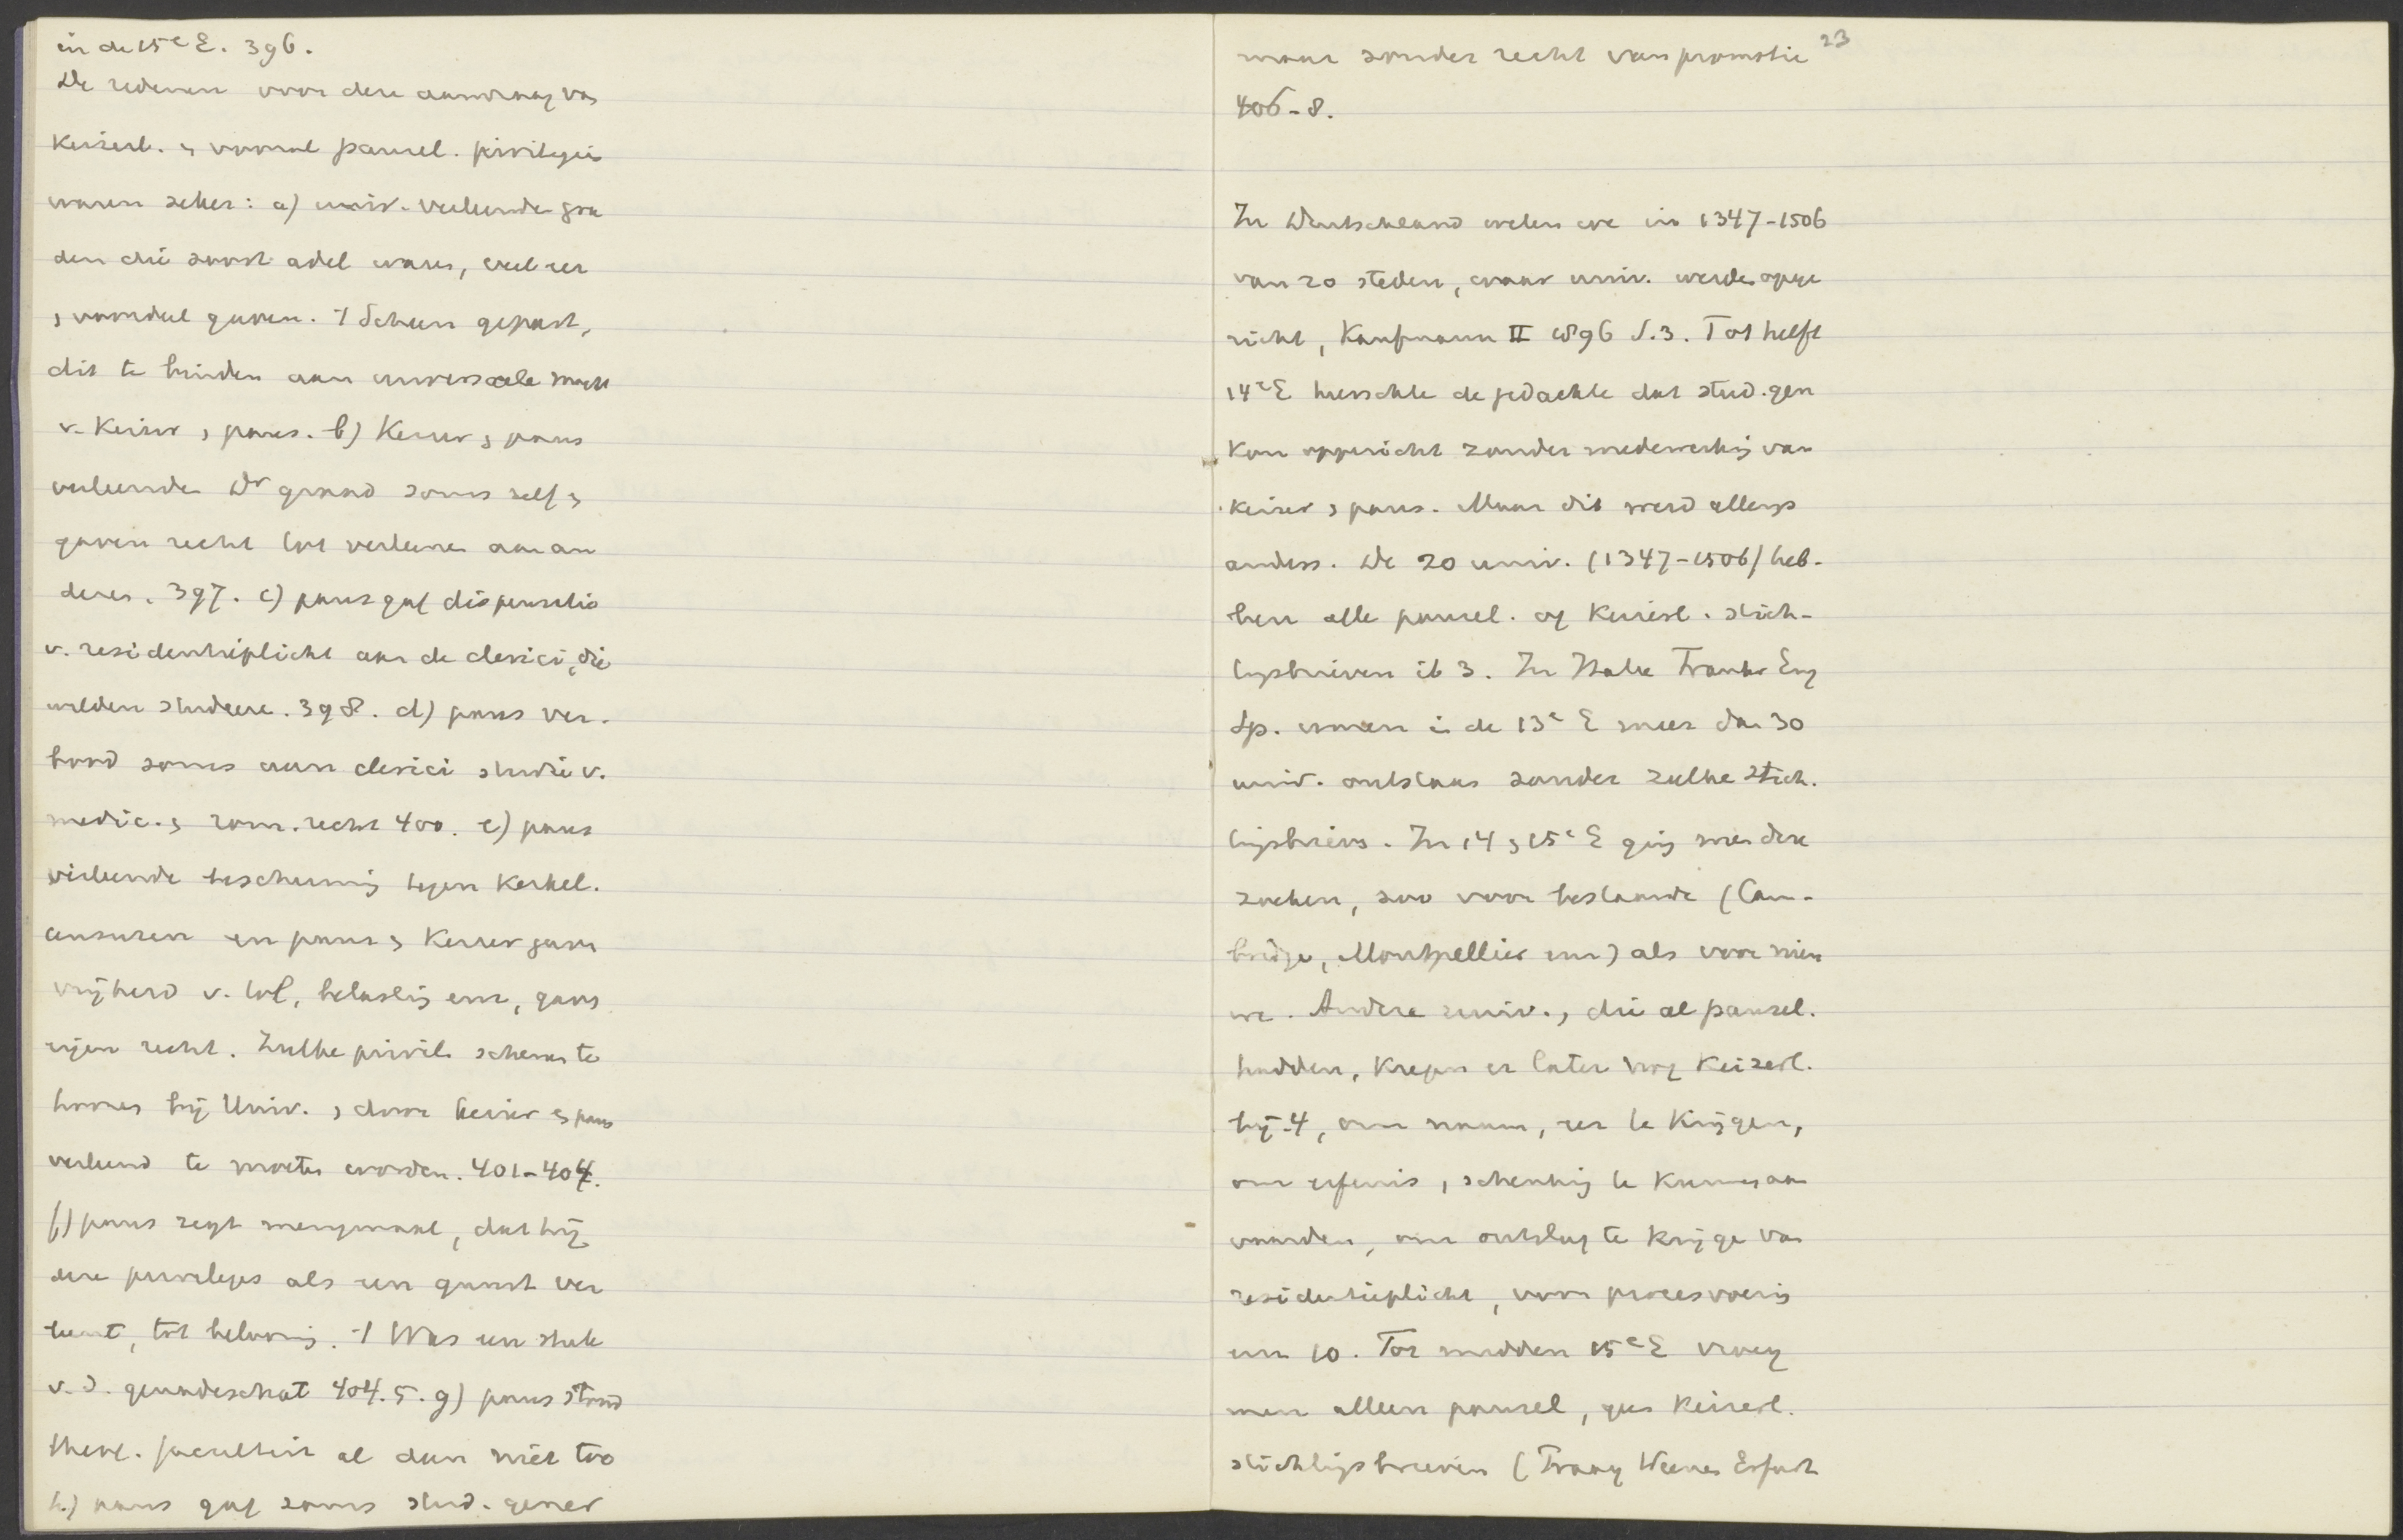 in de 15e E. 396.
De redenen voor deze aanvraag van
Keizerl. en vooral pausel. privilegies
waren zeker: a) univ. verleende gra
den die soort adel waren, veel eer
en voordeel gaven. 't Scheen gepast,
dit te binden aan universeele macht
v. Keizer en paus. b) Keizer en paus
verleenden Dr graad soms zelf en
gaven recht tot verleenen aan an
deren. 397. c) paus gaf dispensatie
v. residentieplicht aan de clerici, die
wilden studeeren. 398. d) paus ver-
bood soms aan clerici studie v.
medic. en rom. recht 400. e) paus
verleende bescherming tegen Kerkel.
censuren en paus en Keizer gaven
vrijheid v. tol, belasting enz, gaven
eigen recht. Zulke privil. schenen te
hooren bij Univ. en door keizer en paus
verleend te moeten worden. 401-404.
f) paus zegt menigmaal, dat hij
deze privileges als een gunst ver
leent, tot belooning. 't Was een stuk
v. d. genadeschat 404.5. g) paus stond
theol. faculteit al dan niet toe
h) paus gaf soms stud. gener
maar zonder recht van promotie 23
406-8.
In Deutschland weten we in 1347-1506
van 20 steden, waar univ. werden opge
richt, Kaufmann II 1896 S.3. Tot helft
14e E heerschte de gedachte dat stud. gen
kon opgericht zonder medewerking van
keizer en paus. Maar dit werd allengs
anders. De 20 univ. (1347-1506) heb-
ben alle pausel. of Keizerl. stich-
tingsbrieven ib 3. In Italie Frankr Eng
Sp. waren in de 13e E meer dan 30
univ. ontstaan zonder zulke stich.
tingsbrieven. In 14 en 15e E ging men deze
zoeken, zoo voor bestaande (Cam-
bridge, Montpellier enz) als voor nieu
we. Andere univ., die al pausel.
hadden, kregen er later nog Keizerl.
bij 4, om naam, eer te krijgen,
om erfenis, schenking te kunnen aan
vaarden, om ontslag te krijgen van
residentieplicht, voor procesvoering
enz 10. Tot midden 15e E vroeg
men alleen pausel, geen Keizerl.
stichtingsbrieven (Praag Weenen Erfurt